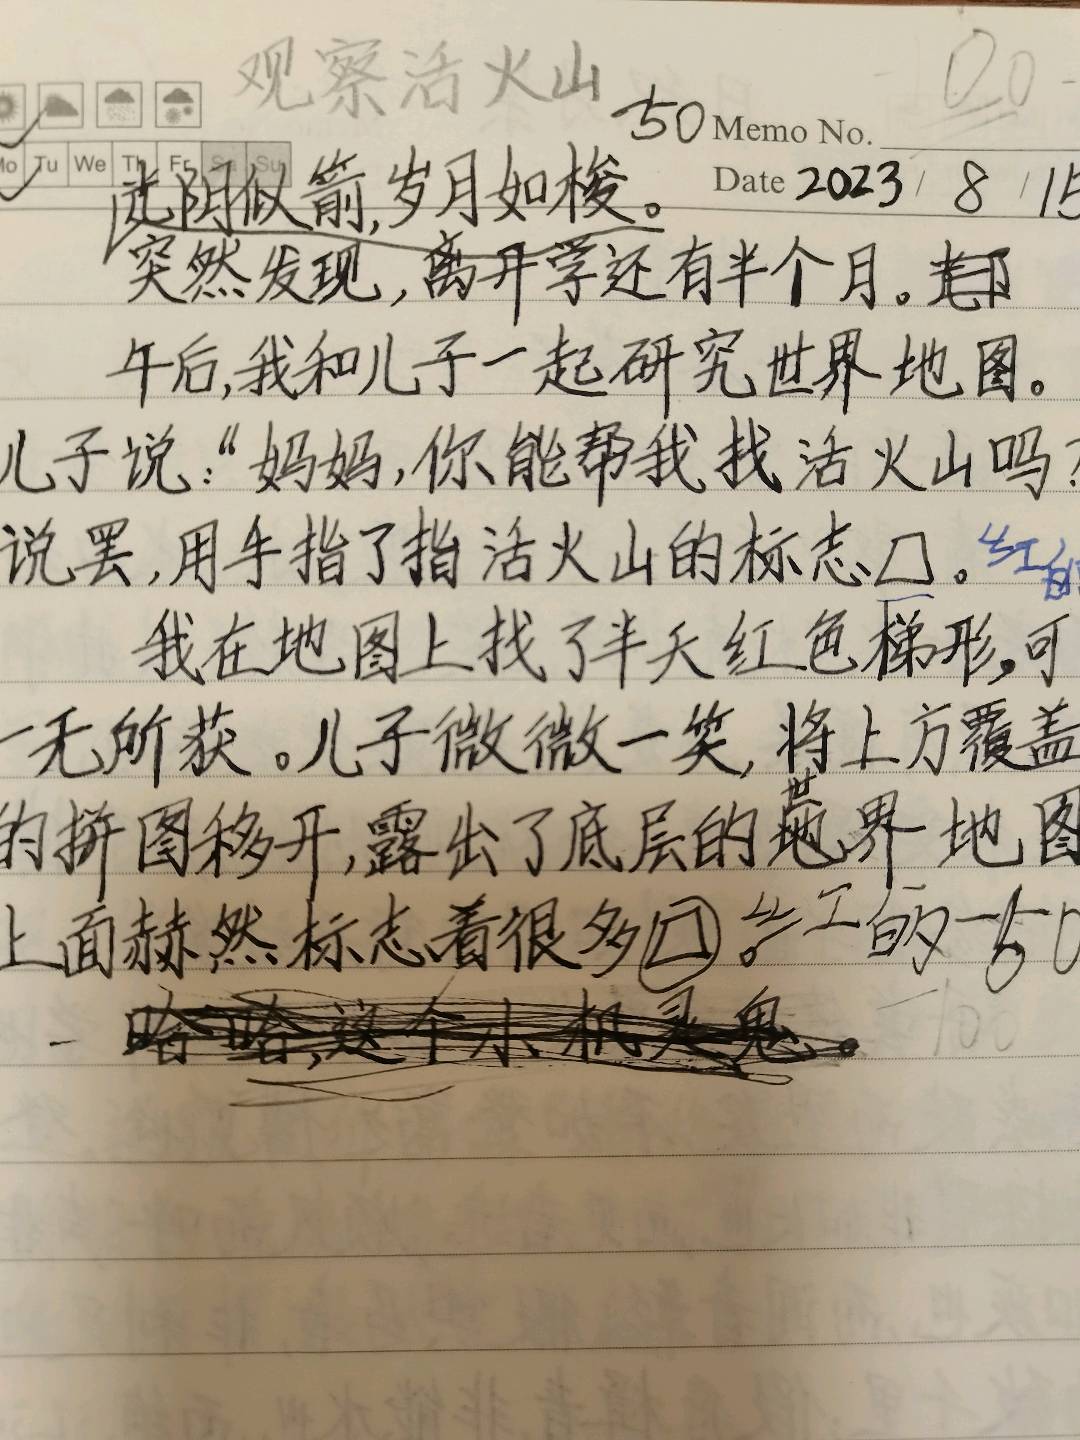 观察活火山
50 Memo No.
Mo Tu We Th Fr Sa Su
Date 2023 / 8 / 15
光阴似箭,岁月如梭。
突然发现,离开学还有半个月。
午后,我和儿子一起研究世界地图。
儿子说:“妈妈,你能帮我找活火山吗?
说罢,用手指了指活火山的标志□。红
我在地图上找了半天红色梯形,可
一无所获。儿子微微一笑,将上方覆盖
的拼图移开,露出了底层的世界地图
上面赫然标志着很多□。红的-50
哈哈,这个小机灵鬼。
-100